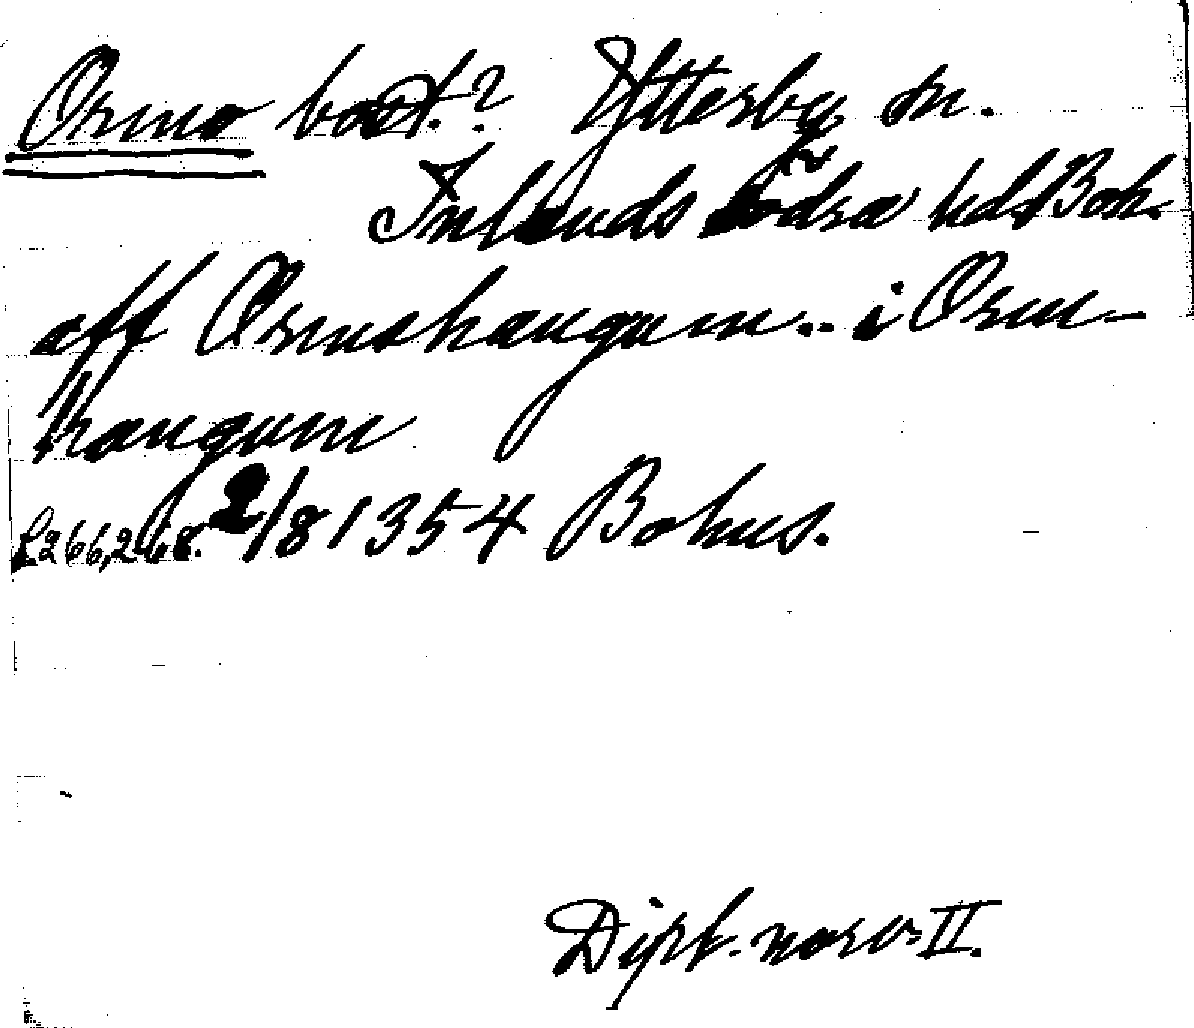 Ormo bost.? Ytterby sn.
Inlands Södra hd. Boh.
aff Ormshaugum.. i Orm-
haugum
s. 266, 268. 2/8 1354 Bohus.
Dipl. norv. II.